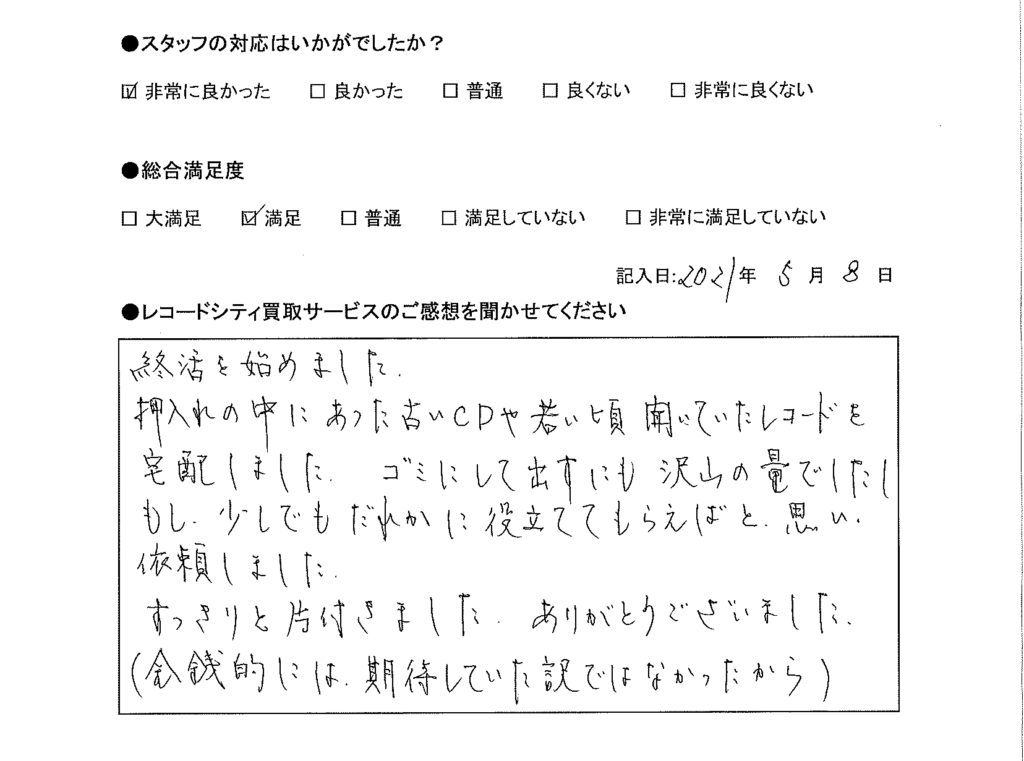 ●スタッフの対応はいかがでしたか？
☑ 非常に良かった □ 良かった □ 普通 □ 良くない □ 非常に良くない
●総合満足度
□ 大満足 ☑ 満足 □ 普通 □ 満足していない □ 非常に満足していない
記入日:2021年 5月 8日
●レコードシティ買取サービスのご感想を聞かせてください
終活を始めました.
押入れの中にあった古いCDや若い頃聞いていたレコードを
宅配しました. ゴミにして出すにも沢山の量でしたし
もし.少しでもだれかに役立ててもらえばと.思い.
依頼しました.
すっきりと片付きました. ありがとうございました.
(金銭的には.期待していた訳ではなかったから)